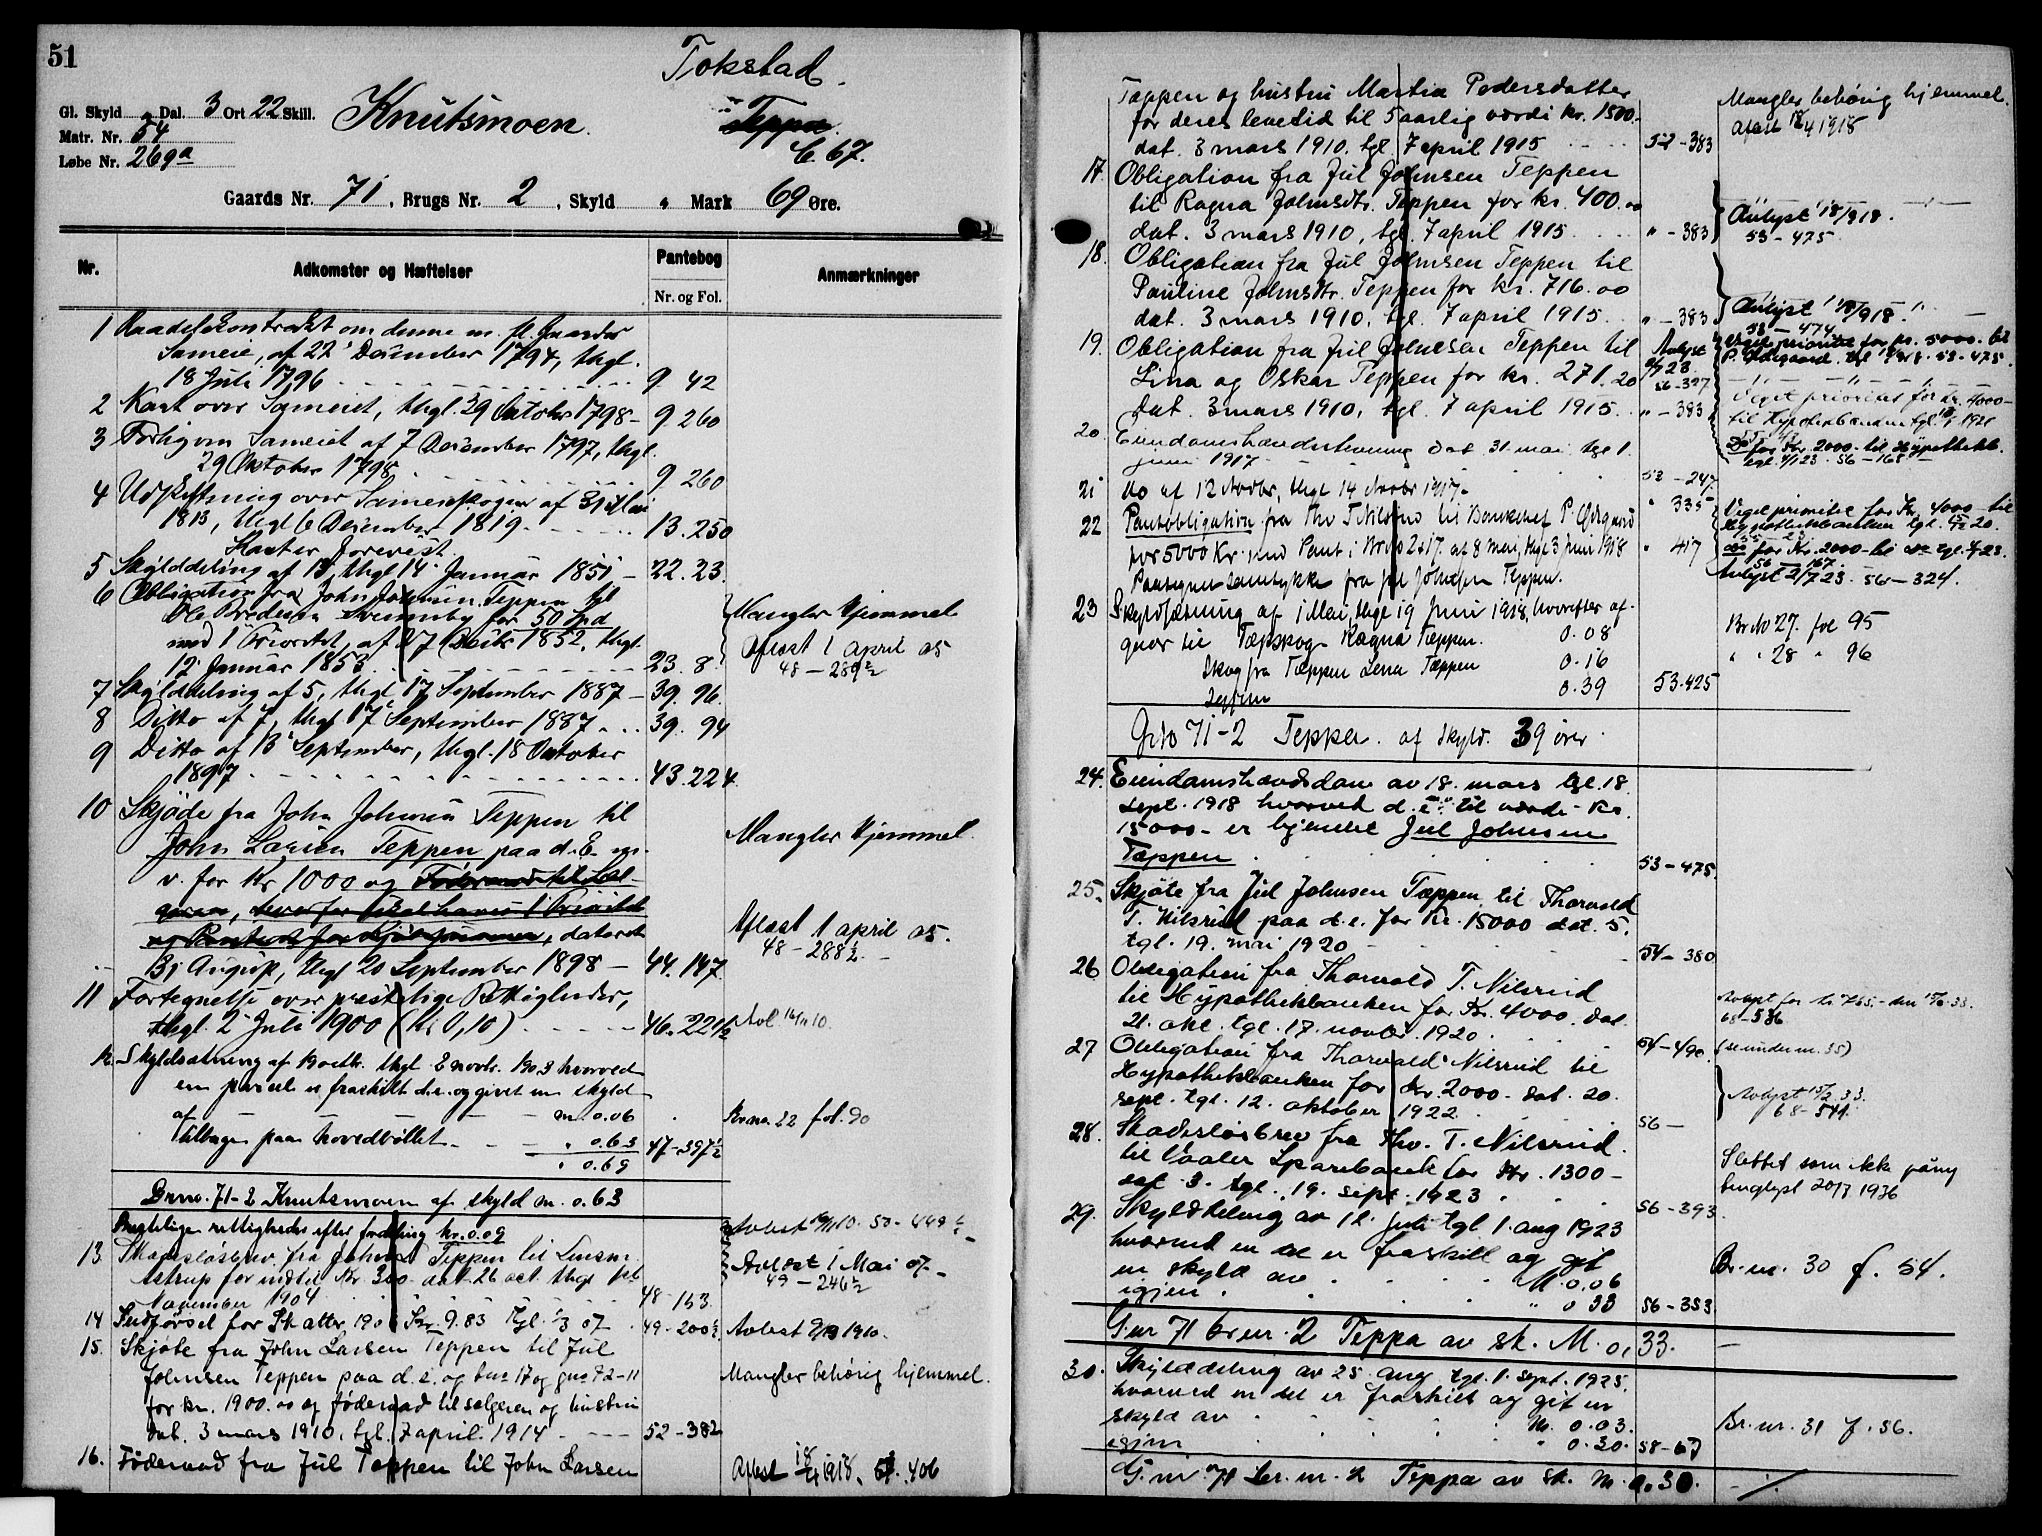 51
Tokstad.
Gl. Skyld " Dal. 3 Ort 22 Skill.
Knutsmoen.
Teppa.
Matr. Nr. 54
6 67.
Løbe Nr. 269a
Gaards Nr. 71, Brugs Nr. 2, Skyld " Mark 69 Øre.
Nr.
Adkomster og Hæftelser
Pantebog
Nr. og Fol.
Anmærkninger
1 Maadelskontrakt om denne m. fl. Gaardes
Sameie, af 22 December 1794, thgl.
18 Juli 1796 9 42
2 Kart over Sameiet, thgl. 29 Oktober 1798 - 9 260
3 Forlig om Sameiet af 7 December 1797, thgl.
29 Oktober 1798 9 260
4 Udskiftning over Sameieskogen af 31 Mai
1813, thgl 6 December 1819 13. 250
Karter forevist.
5 Skylddeling af 13, thgl 14 Januar 1851 - 22. 23.
6 Obligation fra John Johnsen Teppen til
Ole Bredesen Svenneby for 50 Spd
med 1 Prioritet, af 27 Decbr 1852, thgl.
12 Januar 1853 23. 8.
Mangler Hjemmel
Aflæst 1 april 05
48 - 289½
7 Skylddeling af 5, thgl 17 September 1887 - 39. 96.
8 Ditto af 7, thgl 17 September 1887 39. 94
9 Ditto af 13 September, thgl. 18 Oktober
1897 43. 224.
10 Skjøde fra John Johnsen Teppen til
John Larsen Teppen paa d. E. m.
v. for Kr 1000 og Føderaad til Sæl-
geren, dateret
31 August, thgl 20 September 1898 - 44. 147.
Mangler Hjemmel.
Aflæst 1 april 05.
48 - 288½
11 Fortegnelse over prestelige Rettigheder,
thgl. 2 Juli 1900 (Kr 0,10) 46. 221½
Avl 16/11 10.
12 Skyldsætning af 13 oktbr. thgl 2 novbr. 1903 hvorved
en parcel er fraskilt d.e. og givet en skyld
af m. 0.06
Tilbage paa hovedbøllet " 0.63 47-397½
" 0.69
Br no. 22 fol. 90
Brno. 71-2 Knutsmoen af skyld m. 0.63
Prestelige rettigheder efter fradeling kr. 0.09
Avlæst 16/11 10. 50 - 449½
13. Skadesløsbrev fra Johan Teppen til Lensm.
Astrup for indtil Kr. 300 dat. 26 oct. thgl 1st
November 1904 48 - 153.
Avlæst 1 Mai 07 -
49 - 246½
14 Sudførsel for Sk atter, 190 Kr. 9.83 Tgl. 1/3 07 49 - 200½
Avlæst 9/ 1910.
15. Skjøte fra John Larsen Teppen til Jul
Johnsen Teppen paa d. e. og bno 17 og gno 72-11
for kr. 1900.00 og føderaad til selgeren og hustru
dat. 3 mars 1910, tgl. 7 april 1914 52 - 382
Mangler behørig hjemmel.
16. Føderaad fra Jul Teppen til John Larsen
Aflæst 18/4 1918. 53. 406
Teppen og hustru Martia Pedersdatter
for deres levetid til 5 aarlig værdi kr. 1500.-
dat. 3 mars 1910. tgl. 7 april 1915 52 - 383
Mangler behørig hjemmel.
Aflæst 18/4 1918
17. Obligation fra Jul Johnsen Teppen
til Ragna Johnsdtr. Teppen for kr. 400.00
dat. 3 mars 1910, tgl. 7 april 1915 " - 383
Avlyst 18/9 18.
53 - 475.
18. Obligation fra Jul Johnsen Teppen til
Pauline Johnsdtr. Teppen for kr. 716.00
dat. 3 mars 1910, tgl. 7 april 1915 " - 383
Avlyst 18/9 18.
53 - 474
19. Obligation fra Jul Johnsen Teppen til
Lina og Oskar Teppen for kr. 271.20
dat. 3 mars 1910, tgl. 7 april 1915 " - 383
Avlyst
56-397
Veget prioritet for kr. 5000. til
P. Ødegaard. tgl 53 - 475.
Veget prioritet for kr. 4000 -
til Hypotekbanken tgl. 1920
do for Kr. 2000 - til Hypothekb.
tgl. 4/1 23. 56 - 168 -
20. Eiendomshævdstevning dat 31 mai tgl 1
juni 1917 53 - 247.
21 do af 12 Novbr, thgl 14 Novbr 1917. " 335
22 Pantobligation fra Thv T. Nilsrud til Bankchef P. Ødegaard
for 5000 Kr. med Pant i Br No 2 & 17. af 8 mai, thgl 3 Juni 1918 " 417
Paategnet samtykke fra Jul Johnsen Teppen.
Veget prioritet for Kr. 4000 - til
Hypothekbanken tgl. 20.
do for Kr. 2000 - til do tgl. 4/1 23.
56 - 167.
Avlyst 2/7 23. 56 - 324.
23 Skyldsætning af 1 Mai thgl 19 Juni 1918, hvorefter af-
gaar til Tæpskog Ragna Tæppen. 0.08
Skog fra Tæppen Lena Tæppen 0.16
Igjen 0.39 53. 425
Br No 27. fol 95
" " 28 " 96
Gno 71-2 Teppen. af skyld. 39 ører.
24. Eiendomshævdsdom av 18. mars tgl. 18
sept. 1918 hvorved d. e. til værdi Kr.
15000 - er hjemlet Jul Johnsen
Tæppen 53 - 475.
25. Skjøte fra Jul Johnsen Tæppen til Thorvald
T. Nilsrud paa d. e. for Kr. 15000 dat. 5.
tgl. 19. mai 1920 54 - 380
26 Obligation fra Thorvald T. Nilsrud
til Hypothekbanken for Kr. 4000. dat.
21. okt. tgl. 17. novbr. 1920. 54 - 490.
Avlyst for kr 765.- den 15/2. 33.
68 - 536
(se under nr. 35)
27 Obligation fra Thorvald Nilsrud til
Hypothekbanken for Kr. 2000 - dat. 20.
sept. tgl. 12. oktober 1922 56 -
Avlyst 15/2. 33.
68 - 544.
28. Skadesløsbrev fra Thv. T. Nilsrud.
til Vaaler Sparebank for Kr. 1300 -
dat. 3. tgl. 19. sept. 1923 56 - 393.
Slettet som ikke påny
tinglyst 20/7 1936
29. Skylddeling av 12. juli tgl. 1. aug 1923
hvorved en del er fraskilt og git
en skyld av M. 0.06
igjen. " 0 33 56 - 353
Br. nr. 30 f. 54.
G.nr 71 br.nr. 2 Teppa av sk. M. 0,33.
30. Skylddeling av 25. aug. tgl. 1. sept. 1925.
hvorved en del er fraskilt og git en
skyld av M. 0.03.
igjen " 0.30. 58 - 67
Br. nr. 31 f. 56.
G. nr 71 br. nr. 2 Teppa av sk. M. 0.30.